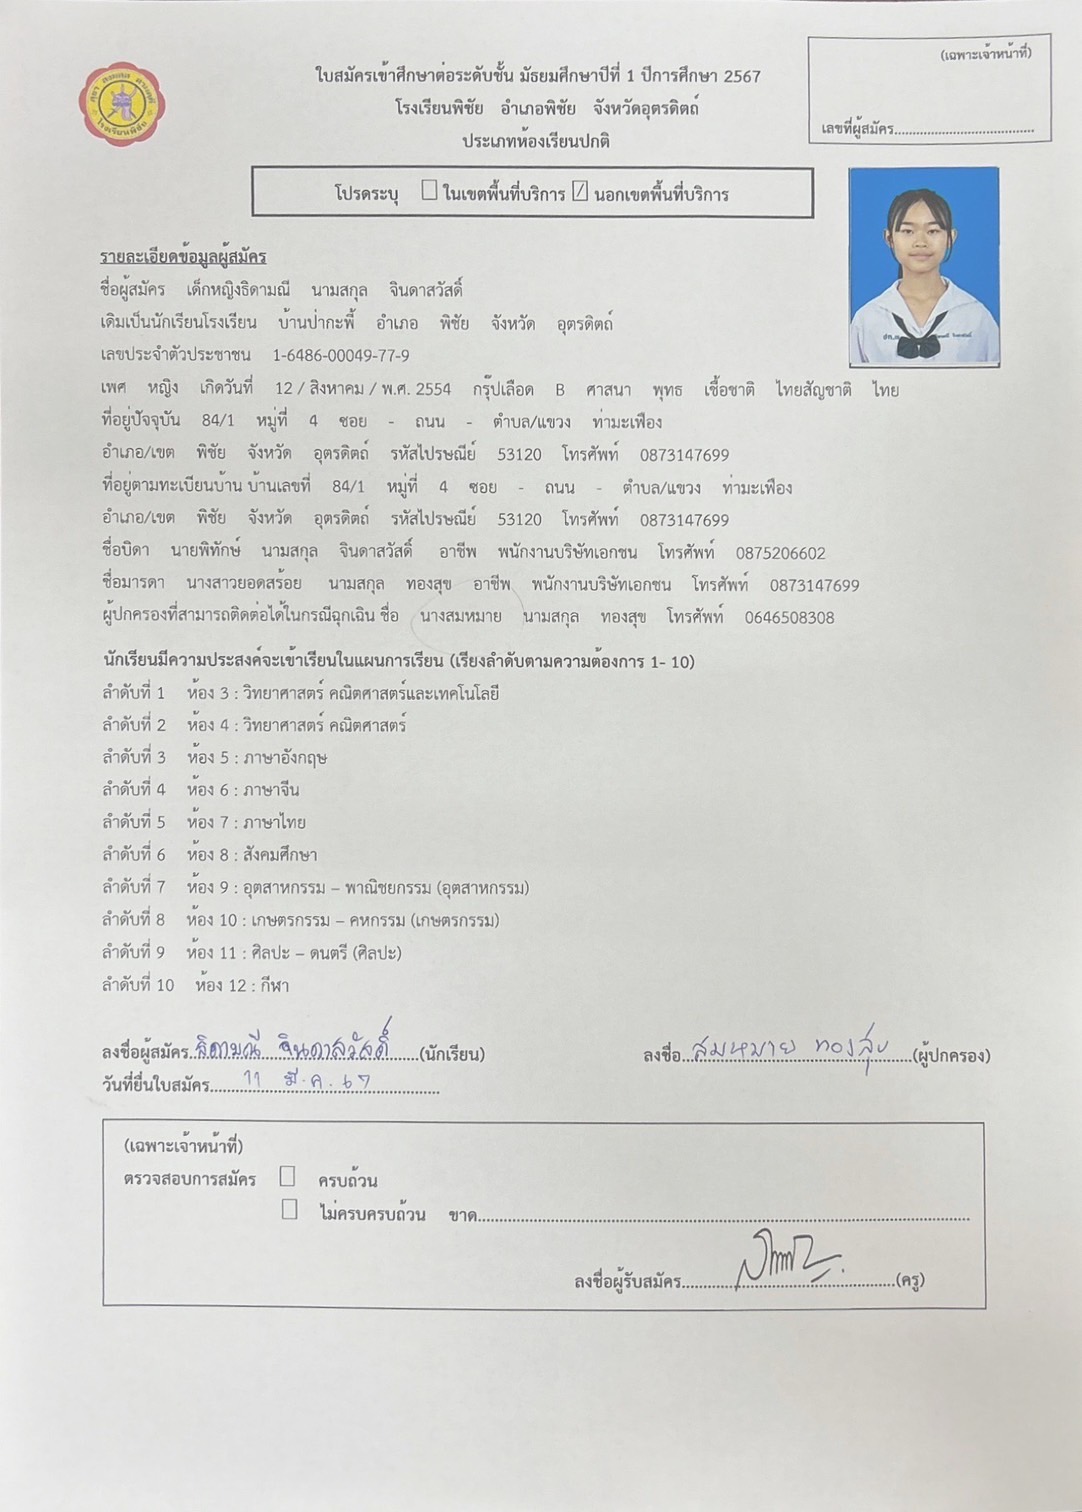 (เฉพาะเจ้าหน้าที่)
เลขที่ผู้สมัคร
ใบสมัครเข้าศึกษาต่อระดับชั้น มัธยมศึกษาปีที่ 1 ปีการศึกษา 2567
โรงเรียนพิชัย อำเภอพิชัย จังหวัดอุตรดิตถ์
ประเภทห้องเรียนปกติ
โปรดระบุ ในเขตพื้นที่บริการ / นอกเขตพื้นที่บริการ
รายละเอียดข้อมูลผู้สมัคร
ชื่อผู้สมัคร เด็กหญิงธิดามณี นามสกุล จินดาสวัสดิ์
เดิมเป็นนักเรียนโรงเรียน บ้านป่ากะพี้ อำเภอ พิชัย จังหวัด อุตรดิตถ์
เลขประจำตัวประชาชน 1-6486-00049-77-9
เพศ หญิง เกิดวันที่ 12 / สิงหาคม / พ.ศ. 2554 กรุ๊ปเลือด B ศาสนา พุทธ เชื้อชาติ ไทยสัญชาติ ไทย
ที่อยู่ปัจจุบัน 84/1 หมู่ที่ 4 ซอย - ถนน - ตำบล/แขวง ท่ามะเฟือง
อำเภอ/เขต พิชัย จังหวัด อุตรดิตถ์ รหัสไปรษณีย์ 53120 โทรศัพท์ 0873147699
ที่อยู่ตามทะเบียนบ้าน บ้านเลขที่ 84/1 หมู่ที่ 4 ซอย - ถนน - ตำบล/แขวง ท่ามะเฟือง
อำเภอ/เขต พิชัย จังหวัด อุตรดิตถ์ รหัสไปรษณีย์ 53120 โทรศัพท์ 0873147699
ชื่อบิดา นายพิทักษ์ นามสกุล จินดาสวัสดิ์ อาชีพ พนักงานบริษัทเอกชน โทรศัพท์ 0875206602
ชื่อมารดา นางสาวยอดสร้อย นามสกุล ทองสุข อาชีพ พนักงานบริษัทเอกชน โทรศัพท์ 0873147699
ผู้ปกครองที่สามารถติดต่อได้ในกรณีฉุกเฉิน ชื่อ นางสมหมาย นามสกุล ทองสุข โทรศัพท์ 0646508308
นักเรียนมีความประสงค์จะเข้าเรียนในแผนการเรียน (เรียงลำดับตามความต้องการ 1- 10)
ลำดับที่ 1 ห้อง 3 : วิทยาศาสตร์ คณิตศาสตร์และเทคโนโลยี
ลำดับที่ 2 ห้อง 4 : วิทยาศาสตร์ คณิตศาสตร์
ลำดับที่ 3 ห้อง 5 : ภาษาอังกฤษ
ลำดับที่ 4 ห้อง 6 : ภาษาจีน
ลำดับที่ 5 ห้อง 7 : ภาษาไทย
ลำดับที่ 6 ห้อง 8 : สังคมศึกษา
ลำดับที่ 7 ห้อง 9 : อุตสาหกรรม – พาณิชยกรรม (อุตสาหกรรม)
ลำดับที่ 8 ห้อง 10 : เกษตรกรรม – คหกรรม (เกษตรกรรม)
ลำดับที่ 9 ห้อง 11 : ศิลปะ – ดนตรี (ศิลปะ)
ลำดับที่ 10 ห้อง 12 : กีฬา
ลงชื่อผู้สมัคร ธิดามณี จินดาสวัสดิ์ (นักเรียน) ลงชื่อ สมหมาย ทองสุข (ผู้ปกครอง)
วันที่ยื่นใบสมัคร 11 มี.ค. 67
(เฉพาะเจ้าหน้าที่)
ตรวจสอบการสมัคร ครบถ้วน
ไม่ครบครบถ้วน ขาด
ลงชื่อผู้รับสมัคร (ครู)